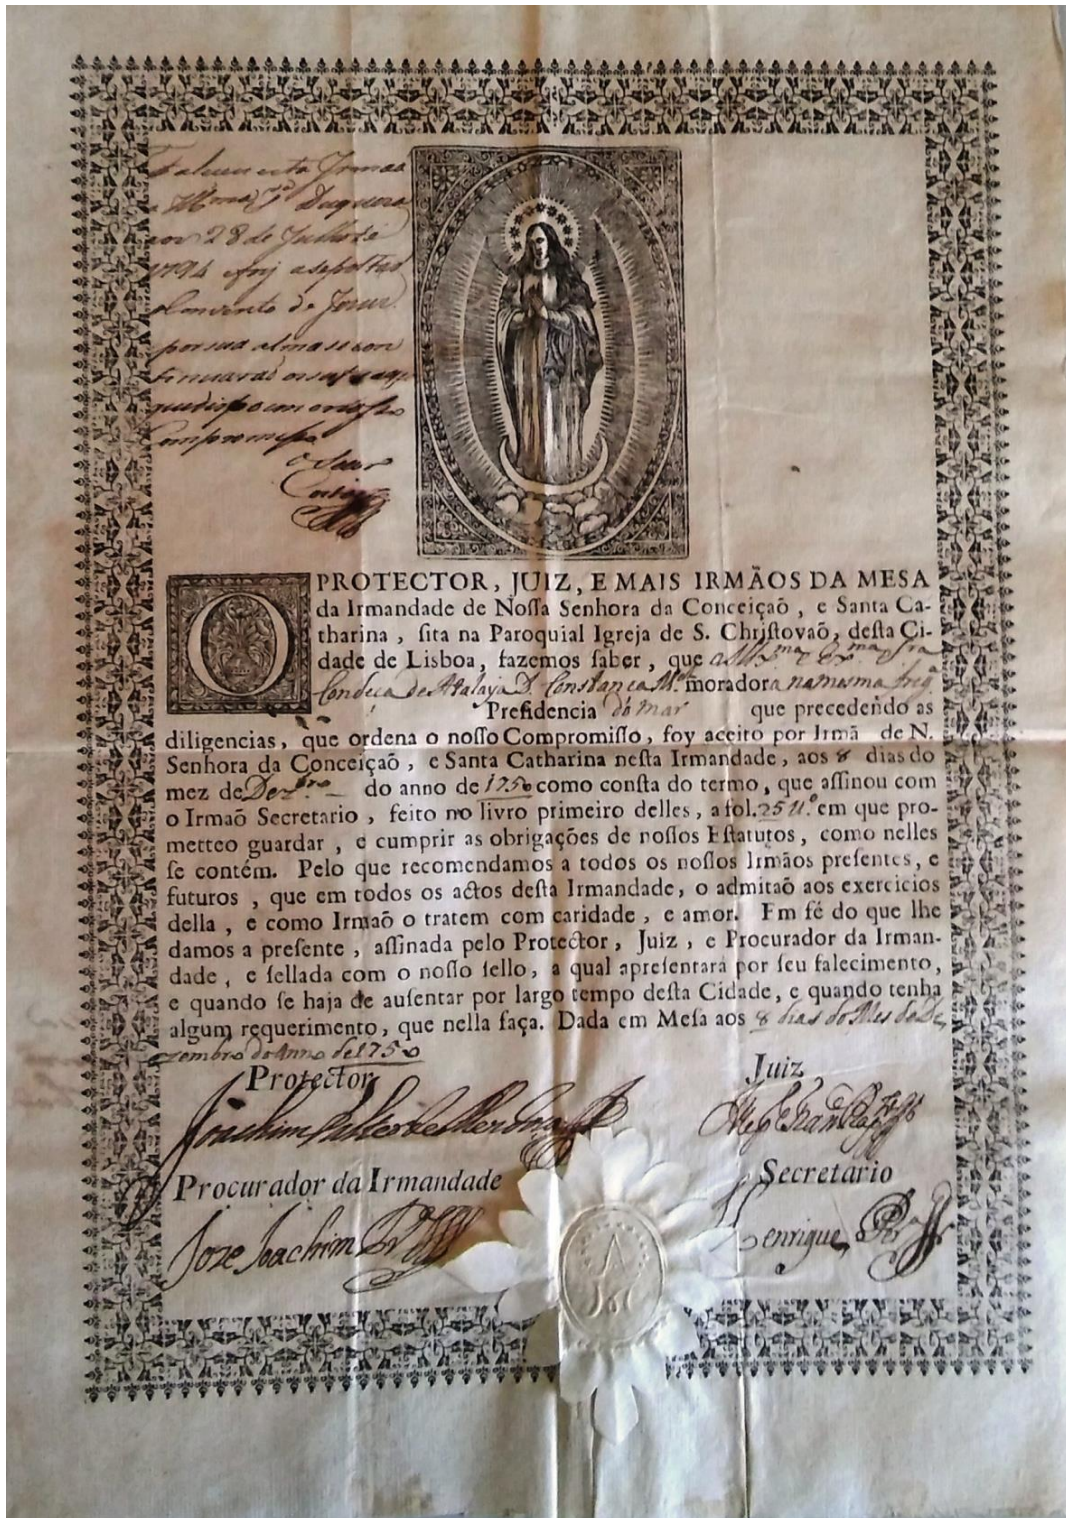 Faleceu esta Irmaã
a Duqueza
aos 28 de Julho de
1794 e foy a sepultar
Convento de Jesus
por sua alma se con
tinuaraõ
que dispoem o nosso
Compromisso
O
PROTECTOR, JUIZ, E MAIS IRMÃOS DA MESA
da Irmandade de Noſſa Senhora da Conceiçaõ, e Santa Ca-
tharina, ſita na Paroquial Igreja de S. Chriſtovaõ, deſta Ci-
dade de Lisboa, fazemos ſaber, que a Ill.ma Ex.ma Sra
Condeça de Atalaya D. Constança M.el moradora na mesma freg.a
Preſidencia do mar que precedendo as
diligencias, que ordena o noſſo Compromiſſo, foy aceito por Irmã de N.
Senhora da Conceiçaõ, e Santa Catharina neſta Irmandade, aos 8 dias do
mez de Dez.bro do anno de 1750 como conſta do termo, que aſſinou com
o Irmaõ Secretario, feito no livro primeiro delles, a fol. 25 em que pro-
metteo guardar, e cumprir as obrigações de noſſos Eſtatutos, como nelles
ſe contém. Pelo que recomendamos a todos os noſſos Irmãos preſentes, e
futuros, que em todos os actos deſta Irmandade, o admitaõ aos exercicios
della, e como Irmaõ o tratem com caridade, e amor. Em fé do que lhe
damos a preſente, aſſinada pelo Protector, Juiz, e Procurador da Irman-
dade, e ſellada com o noſſo ſello, a qual apreſentará por ſeu falecimento,
e quando ſe haja de auſentar por largo tempo deſta Cidade, e quando tenha
algum requerimento, que nella faça. Dada em Meſa aos 8 dias do Mes de De
zembro do Anno de 1750
Protector Juiz
Joachim
Procurador da Irmandade Secretario
Joze Joachim Henrique